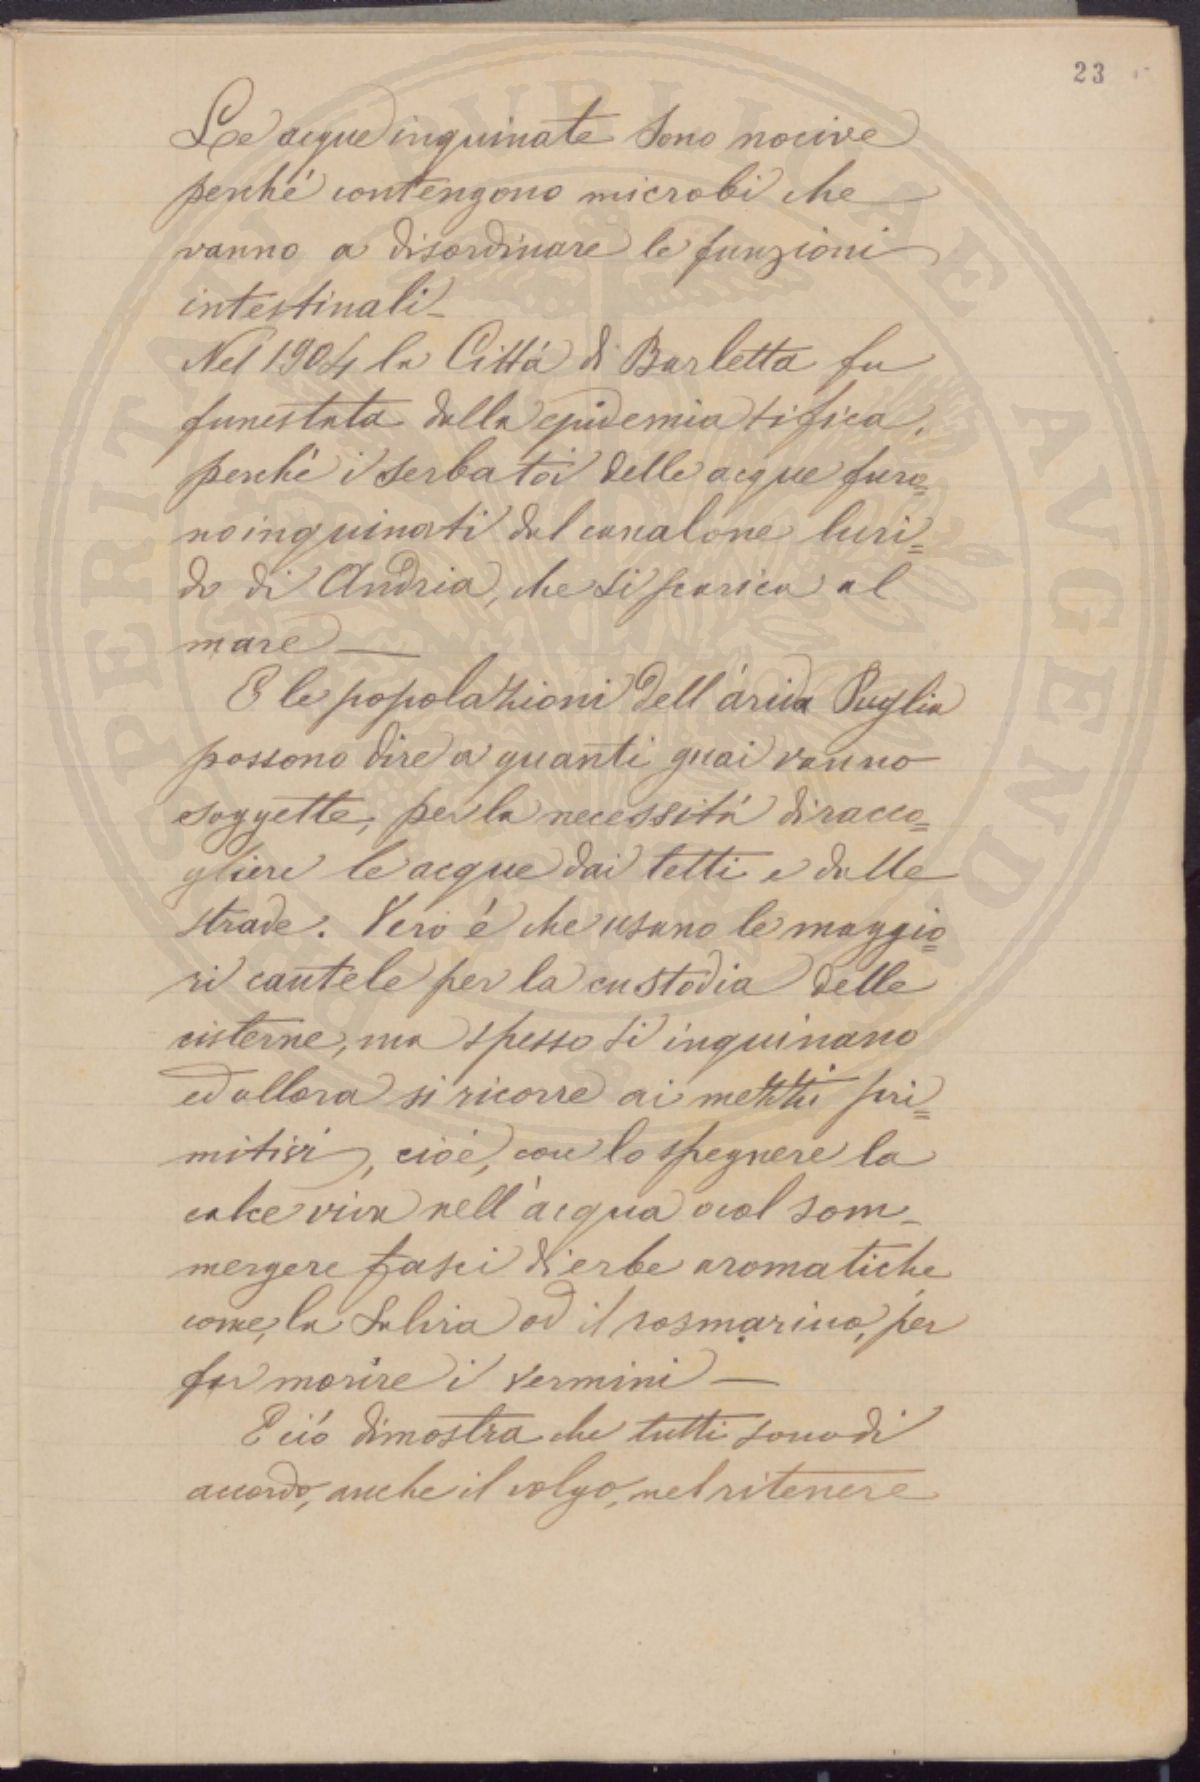 23
Le acque inquinate sono nocive
perché contengono microbi che
vanno a disordinare le funzioni
intestinali_
Nel 1904 la Cittá di Barletta fu
funestata dalla epidemia tifica,
perché i serbatoi delle acque furo=
no inquinati dal canalone luri=
do di Andria, che si scarica al
mare —
E le popolazioni dell'arida Puglia
possono dire a quanti guai vanno
soggette, per la necessitá di racco=
gliere le acque dai tetti e dalle
strade. Vero é che usano le maggio=
ri cautele per la custodia delle
cisterne, ma spesso si inquinano
ed allora si ricorre ai mezzi pri=
mitivi, cioé, con lo spegnere la
calce viva nell'acqua o col som_
mergere fasci di erbe aromatiche
come, la salvia od il rosmarino, per
far morire i vermini —
E ció dimostra che tutti sono di
accordo, anche il volgo, nel ritenere
PERITATI PVBLICAE AVGENDAE